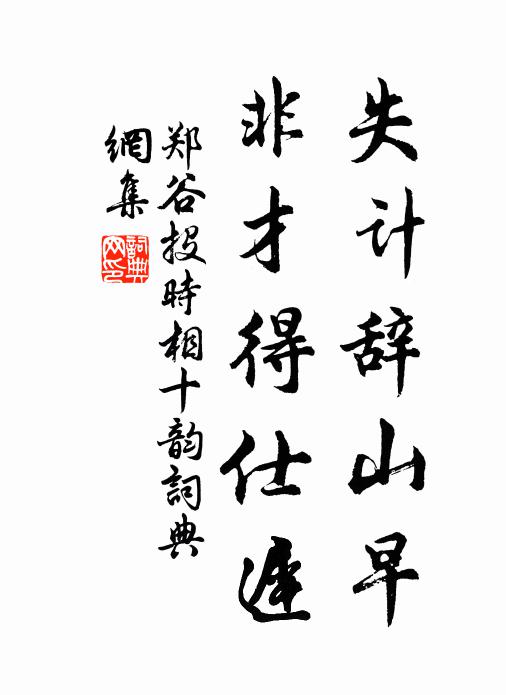 失计辞山早
非才得仕遲
郑谷投時相十韵詞典
網集
詞典網印